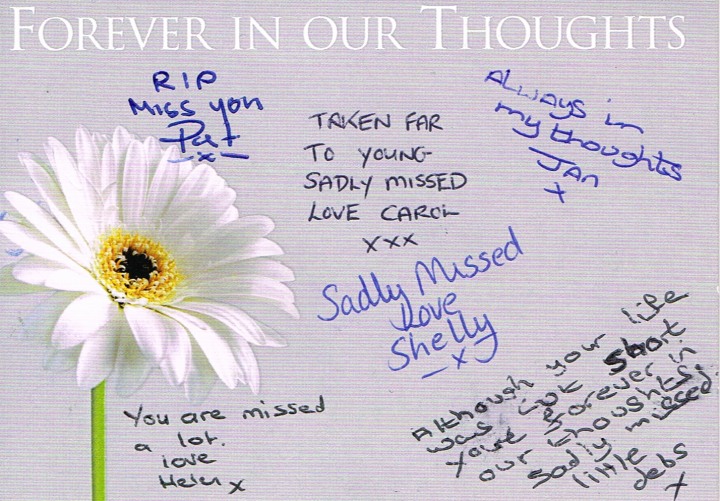 FOREVER IN OUR THOUGHTS
RIP
MISS YOU
Pat
x
TAKEN FAR
TO YOUNG
SADLY MISSED
LOVE CAROL
xxx
ALWAYS in
my thoughts
JAN
x
Sadly Missed
Love
Shelly
x
You are missed
a lot.
love
Helen x
Although your life
was cut short
you're forever in
our thoughts,
sadly missed.
little
debs
x